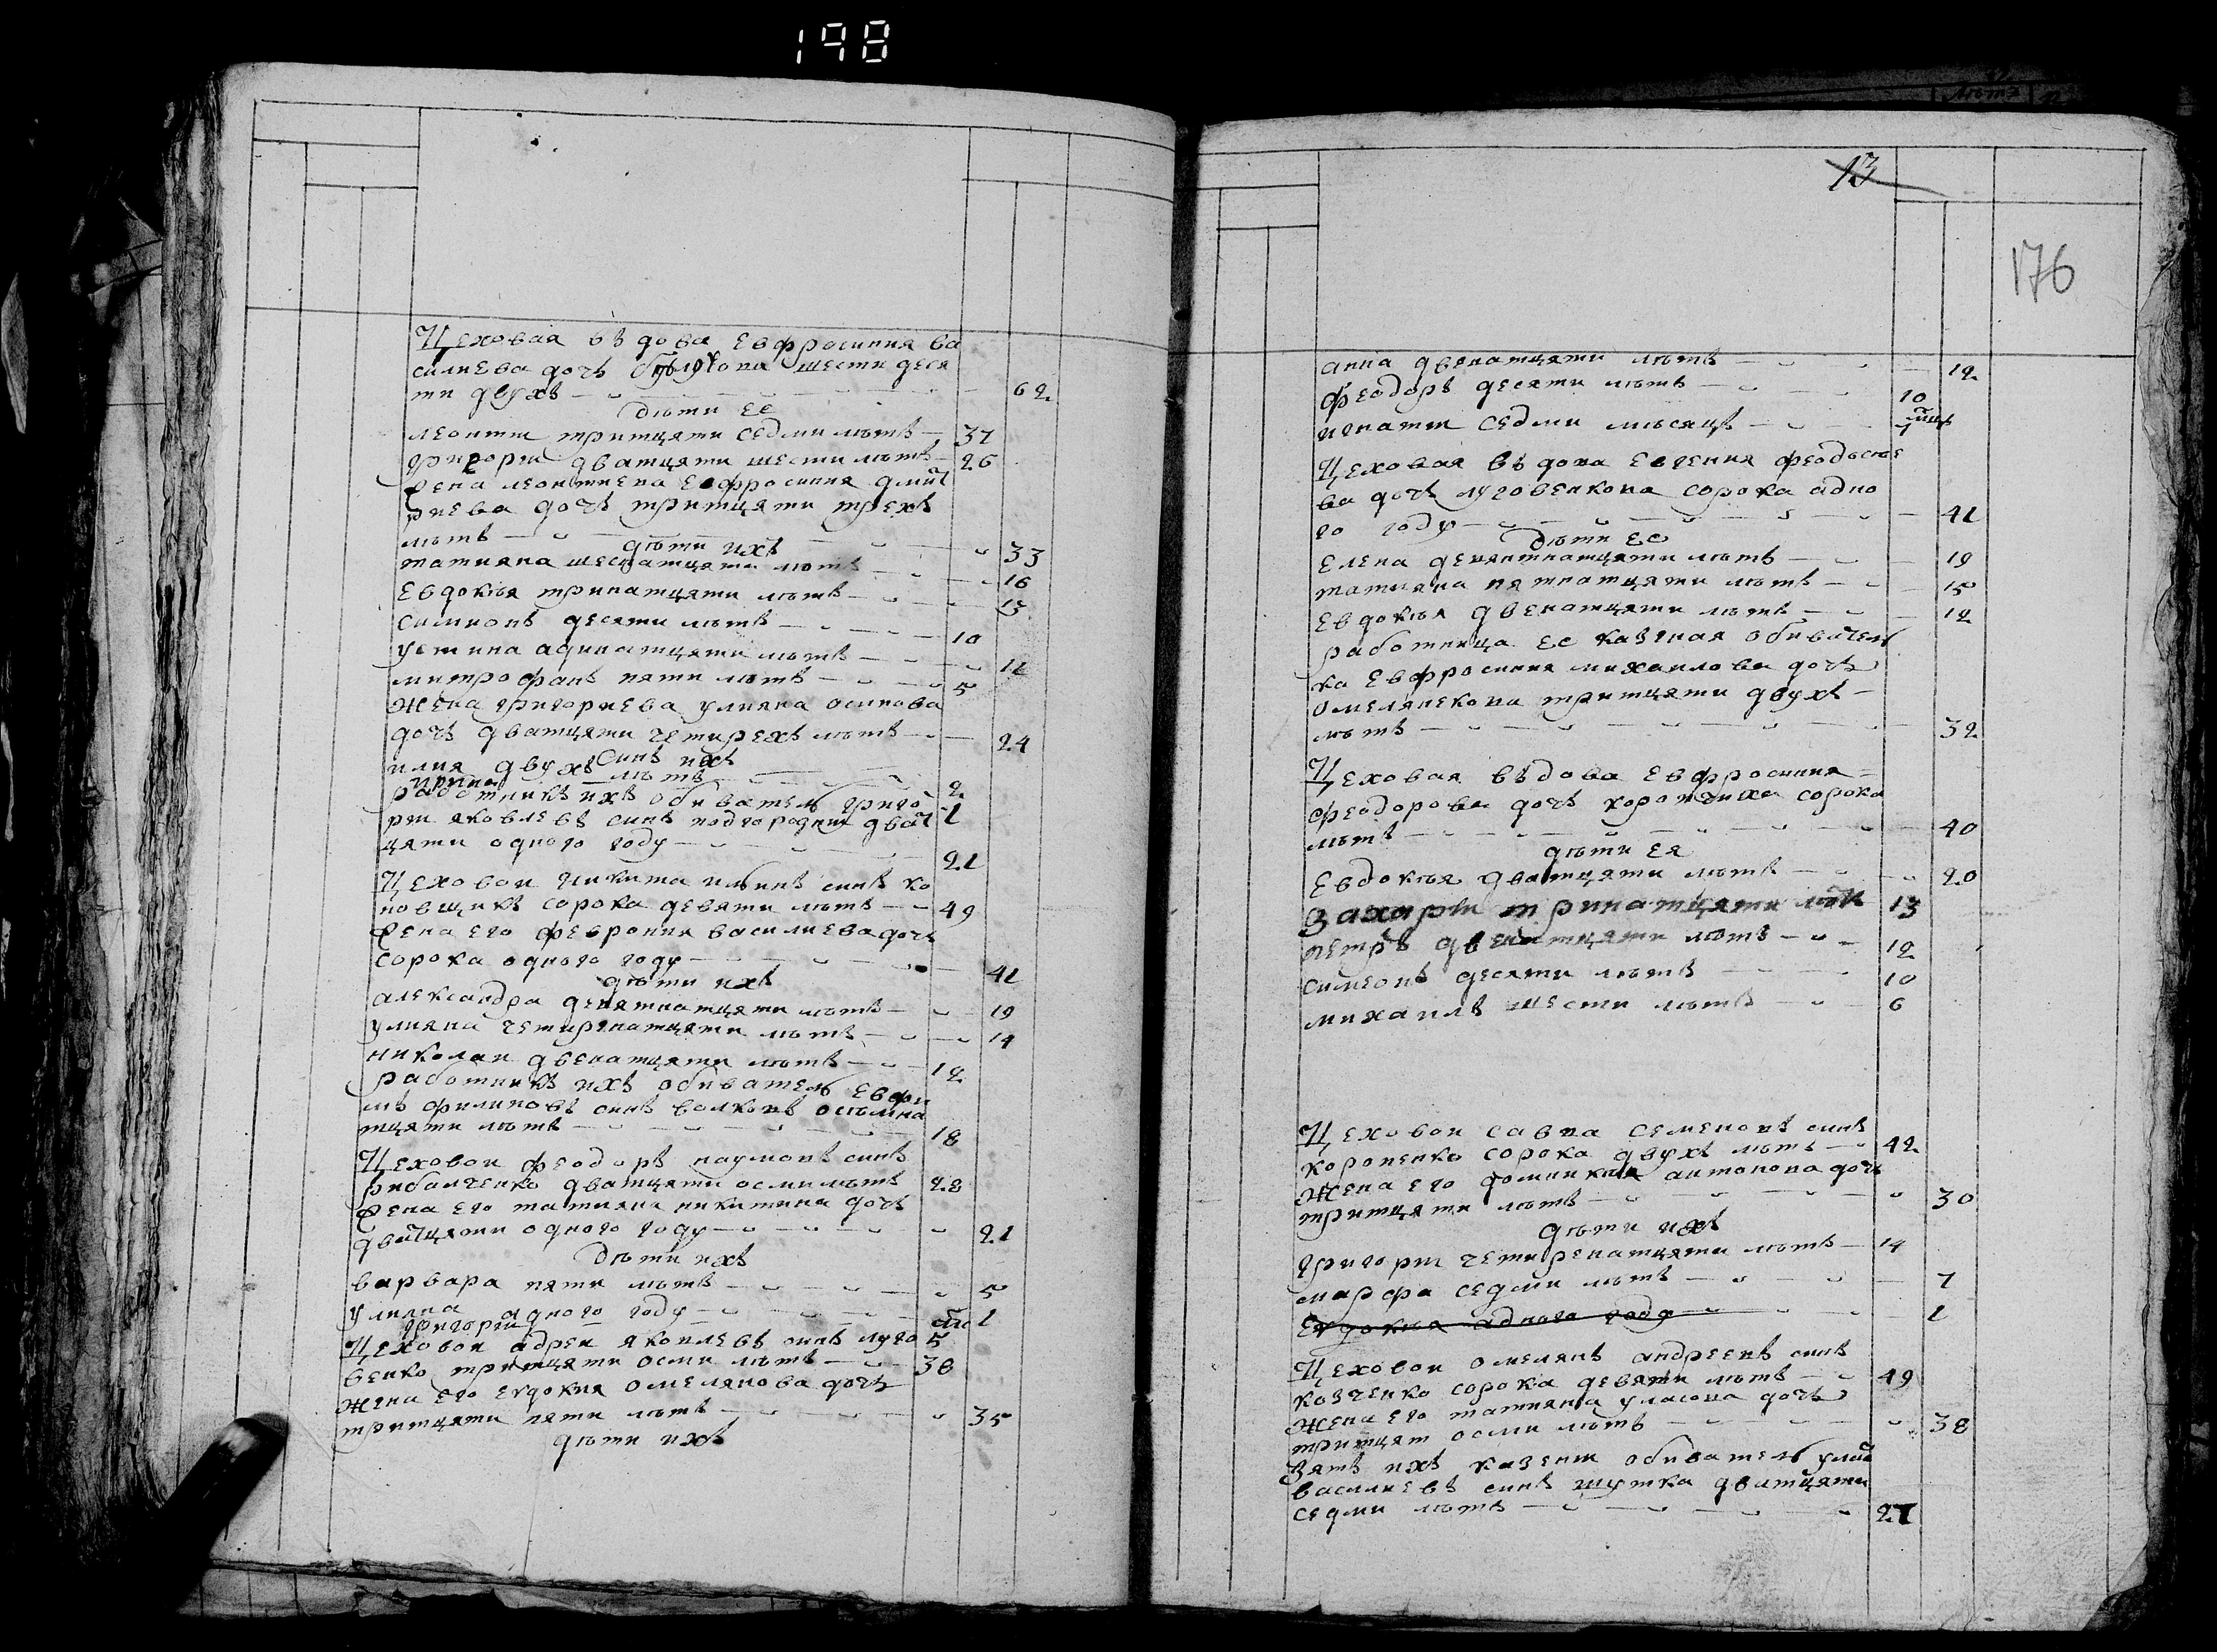 198
Цеховая вѣдова Евфросиния ва
силиева дочь шести деся
ти двухъ 62
дѣти ее
леонти тритцяти седми лѣтъ 37
григори дватцяти шести лѣтъ 26
Жена леонтиева Евфросиния дми
риева дочь тритцяти трехъ
лѣтъ 33
дѣти ихъ
татияна шеснатцяти лѣтъ 16
Евдокѣя тринатцяти лѣтъ 13
симионъ десяти лѣтъ 10
устина адинатцяти лѣтъ 11
митрофанъ пяти лѣтъ 5
Жена григориева улияна осипова
дочь дватцяти четирехъ лѣтъ 24
синъ ихъ
илия двухъ лѣтъ 2
ирина 1
работникъ ихъ обиватель григо
ри яковлевъ синъ подгородни дват
цяти одного году 21
Цеховой никита ильинъ синъ ко
новщикъ сорока девяти лѣтъ 49
Жена его феврония василиева дочь
сорока одного году 41
дѣти ихъ
александра девятнатцяти лѣтъ 19
улияна четиренатцяти лѣтъ 14
николаи двенатцяти лѣтъ 12
работникъ ихъ обиватель Евфи
мъ филиповъ синъ волковъ осѣмна
тцяти лѣтъ 18
Цеховои феодоръ наумовъ синъ
рибалченко дватцяти осми лѣтъ 28
Жена его татияна никитина дочь
дватцяти одного году 21
дѣти ихъ
варвара пяти лѣтъ 5
улияна адного году 1
григори 5
Цеховои адреи яковлевъ синъ луго
венко тритцяти осми лѣтъ 38
жена его евдокия омелянова дочь
тритцяти пяти лѣтъ 35
дѣти ихъ
13
176
анна двенатцяти лѣтъ 12
феодоръ десяти лѣтъ 10
игнати седми мѣсяцъ 7 мцъ
Цеховая вѣдова Евгения феодосие
ва дочь луговенкова сорока адно
го году 41
дѣти ее
Елена девятнатцяти лѣтъ 19
татияна пятнатцяти лѣтъ 15
Евдокѣя двенатцяти лѣтъ 12
работница ее казеная обивател
ка Евфросиния михаилова дочь
омелянекова тритцяти двухъ
лѣтъ 32
Цеховая вѣдова Евфросиния
феодорова дочь сорока
лѣтъ 40
дѣти ея
Евдокѣя дватцяти лѣтъ 20
Захари тринатцяти лѣтъ 13
петръ двенатцяти лѣтъ 12
симеонъ десяти лѣтъ 10
михаилъ шести лѣтъ 6
Цеховои савва семеновъ синъ
короненко сорока двухъ лѣтъ 42
Жена его домникия антонова дочь
тритцяти лѣтъ 30
дѣти ихъ
григори четиренатцяти лѣтъ 14
марфа седми лѣтъ 7
Евдокия адного году 1
Цеховои омелянъ андреевъ синъ
козченко сорока девяти лѣтъ 49
жена его татияна уласова дочь
тритцят осми лѣтъ 38
Зять ихъ казени обиватель
василиевъ синъ шутка дватцяти
седми лѣтъ 27